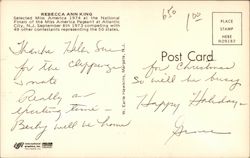 REBECCA ANN KING
Selected Miss America 1974 at the National
Finals of the Miss America Pageant at Atlantic
City, N.J. September 8th 1973 competing with
49 other contestants representing the 50 states.
650
100
PLACE
STAMP
HERE
Post Card
Thanks Helen
for the clipping
& note
Really a
exciting time -
Becky will be home
for Christmas
So will be busy
Happy Holiday -
W. Earle Hawkins, Margate, N.J.